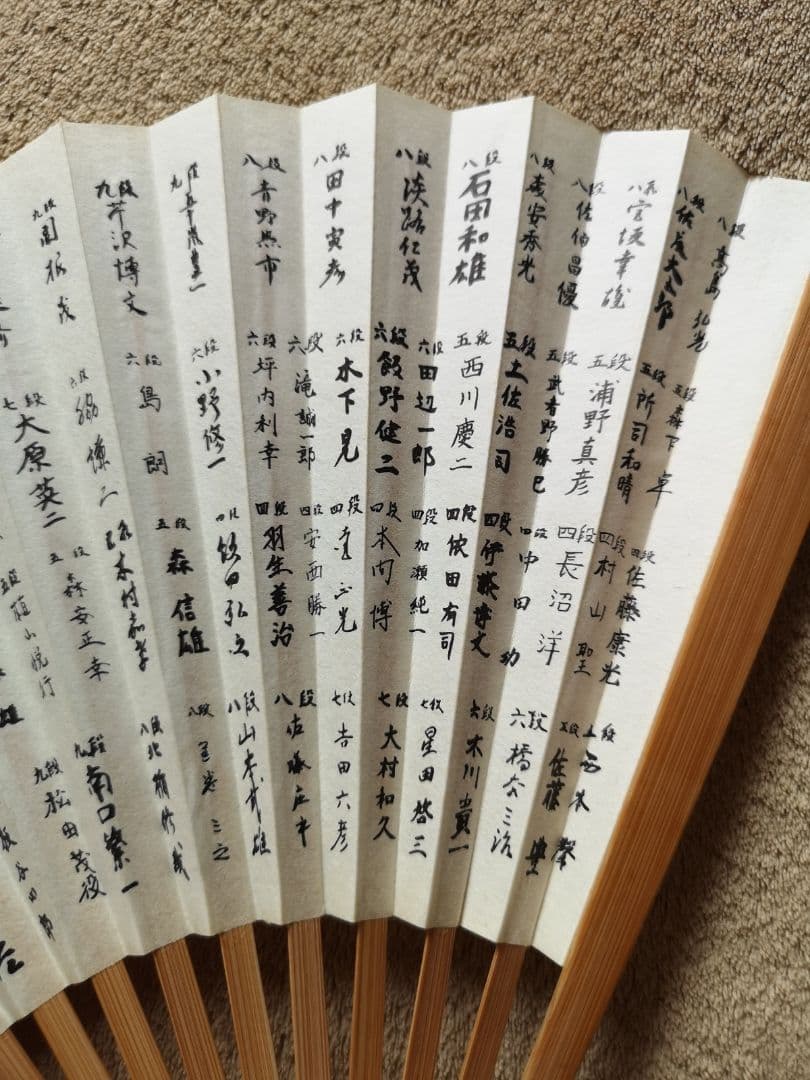 八段 高島弘光
八段 佐藤大五郎
八段 宮坂幸雄
八段 佐伯昌優
八段 森安秀光
八段 石田和雄
八段 淡路仁茂
八段 田中寅彦
八段 青野照市
九段 五十嵐豊一
九段 芹沢博文
九段 関根茂
五段 森下卓
五段 所司和晴
五段 浦野真彦
五段 武者野勝巳
五段 土佐浩司
五段 西川慶二
六段 田辺一郎
六段 飯野健二
六段 木下晃
六段 滝誠一郎
六段 坪内利幸
六段 小野修一
六段 島朗
六段 脇謙二
七段 大原英二
四段 佐藤康光
四段 村山聖
四段 長沼洋
四段 中田功
四段 伊藤博文
四段 依田有司
四段 加瀬純一
四段 本間博
四段 達正光
四段 安西勝一
四段 羽生善治
四段 飯田弘之
五段 森信雄
木村嘉孝
五段 森安正幸
五段 植山悦行
七段 西本馨
佐藤豊
六段 橋本三治
六段 木川貴一
七段 星田啓三
七段 大村和久
七段 吉田六彦
八段 佐藤庄平
八段 山本武雄
八段 荒巻三之
八段 北楯修哉
九段 南口繁一
九段 松田茂役